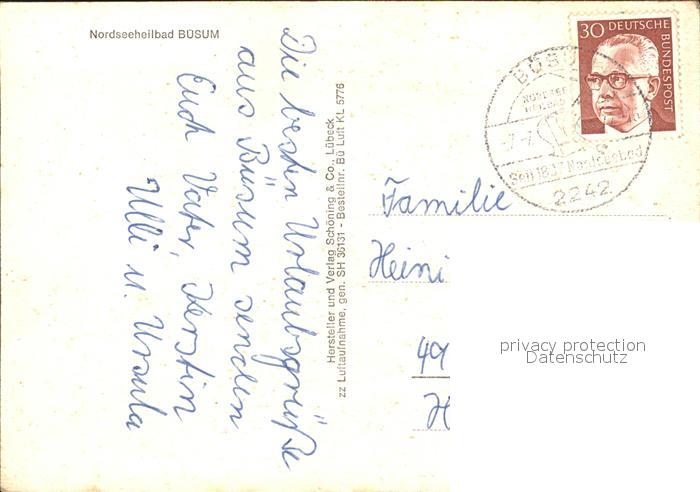 Nordseeheilbad BÜSUM
Die besten Urlaubsgrüße
aus Büsum senden
Euch Vater, Kerstin
Ulli u. Ursula
Hersteller und Verlag Schöning & Co., Lübeck
zz Luftaufnahme, gen. SH 36131 - Bestellnr. Bü Luft KL 5776
30 DEUTSCHE
BUNDESPOST
BÜSU
2242
Familie
Heini
49
H
privacy protection
Datenschutz